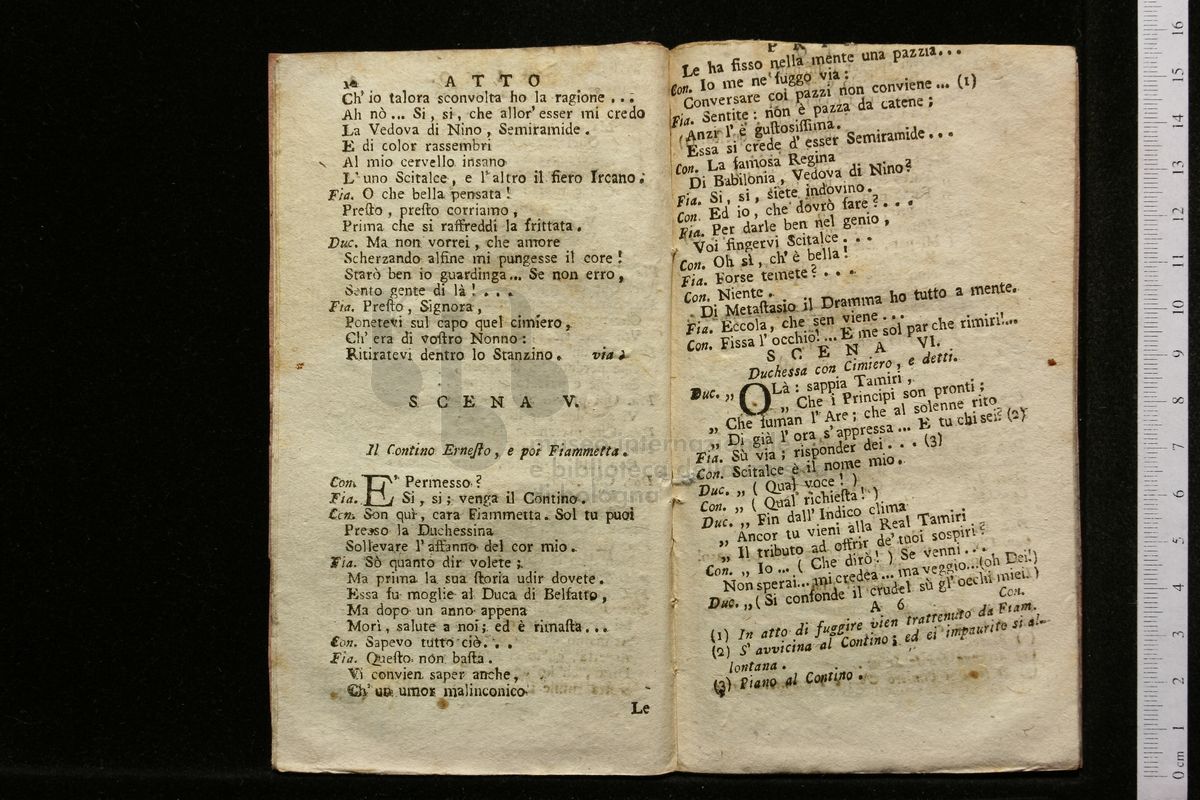 ATTO
Ch' io talora sconvolta ho la ragione ...
Ah nò ... Si, si, che allor' esser mi credo
La Vedova di Nino, Semiramide.
E di color rassembri
Al mio cervello insano
L' uno Scitalce, e l' altro il fiero Ircano.
Fia. O che bella pensata!
Preſto, preſto corriamo,
Prima che si raffreddi la frittata.
Duc. Ma non vorrei, che amore
Scherzando alfine mi pungesse il core!
Starò ben io guardinga... Se non erro,
Sento gente di là! ....
Fia. Preſto, Signora,
Ponetevi sul capo quel cimiero,
Ch' era di voſtro Nonno:
Ritiratevi dentro lo Stanzino. via
SCENA V.
Il Contino Erneſto, e poi Fiammetta.
Con. E' Permesso?
Fia. Si, si; venga il Contino.
Con. Son quì, cara Fiammetta. Sol tu puoi
Presso la Duchessina
Sollevare l' affanno del cor mio.
Fia. Sò quanto dir volete;
Ma prima la sua ſtoria udir dovete.
Essa fu moglie al Duca di Belfatto,
Ma dopo un anno appena
Morì, salute a noi; ed è rimaſta...
Con. Sapevo tutto ciò...
Fia. Queſto non baſta.
Vi convien saper anche,
Ch' un umor malinconico
Le
Le ha fisso nella mente una pazzia...
Con. Io me ne fuggo via:
Conversare coi pazzi non conviene... (1)
Fia. Sentite: non è pazza da catene;
(Anzi l' è guſtosiſſima.
Essa si crede d' esser Semiramide...
Con. La famosa Regina
Di Babilonia, Vedova di Nino?
Fia. Si, si, siete indovino.
Con. Ed io, che dovrò fare?...
Fia. Per darle ben nel genio,
Voi fingervi Scitalce...
Con. Oh sì, ch' è bella!
Fia. Forse temete?....
Con. Niente.
Di Metaſtasio il Dramma ho tutto a mente.
Fia. Eccola, che sen viene...
Con. Fissa l' occhio!... E me sol par che rimiri!...
SCENA VI.
Duchessa con Cimiero, e detti.
Duc. „ OLà: sappia Tamiri,
„ Che i Principi son pronti;
„ Che fuman l' Are; che al solenne rito
„ Di già l' ora s' appressa... E tu chi sei? (2)
Fia. Sù via; risponder dei... (3)
Con. Scitalce è il nome mio.
Duc. „ (Qual voce!)
Con. „ (Qual richieſta!)
Duc. „ Fin dall' Indico clima
„ Ancor tu vieni alla Real Tamiri
„ Il tributo ad offrir de' tuoi sospiri?
Con. „ Io... (Che dirò!) Se venni...
Non sperai... mi credea... ma veggio...(oh Dei!)
Duc. „ (Si confonde il crudel sù gl' occhi miei.)
A 6 Con.
(1) In atto di fuggire vien trattenuto da Fiam.
(2) S' avvicina al Contino; ed ei impaurito si al-
lontana.
(3) Piano al Contino.
museo internazi
e biblioteca d
di bologna
0 cm 1 2 3 4 5 6 7 8 9 10 11 12 13 14 15 16